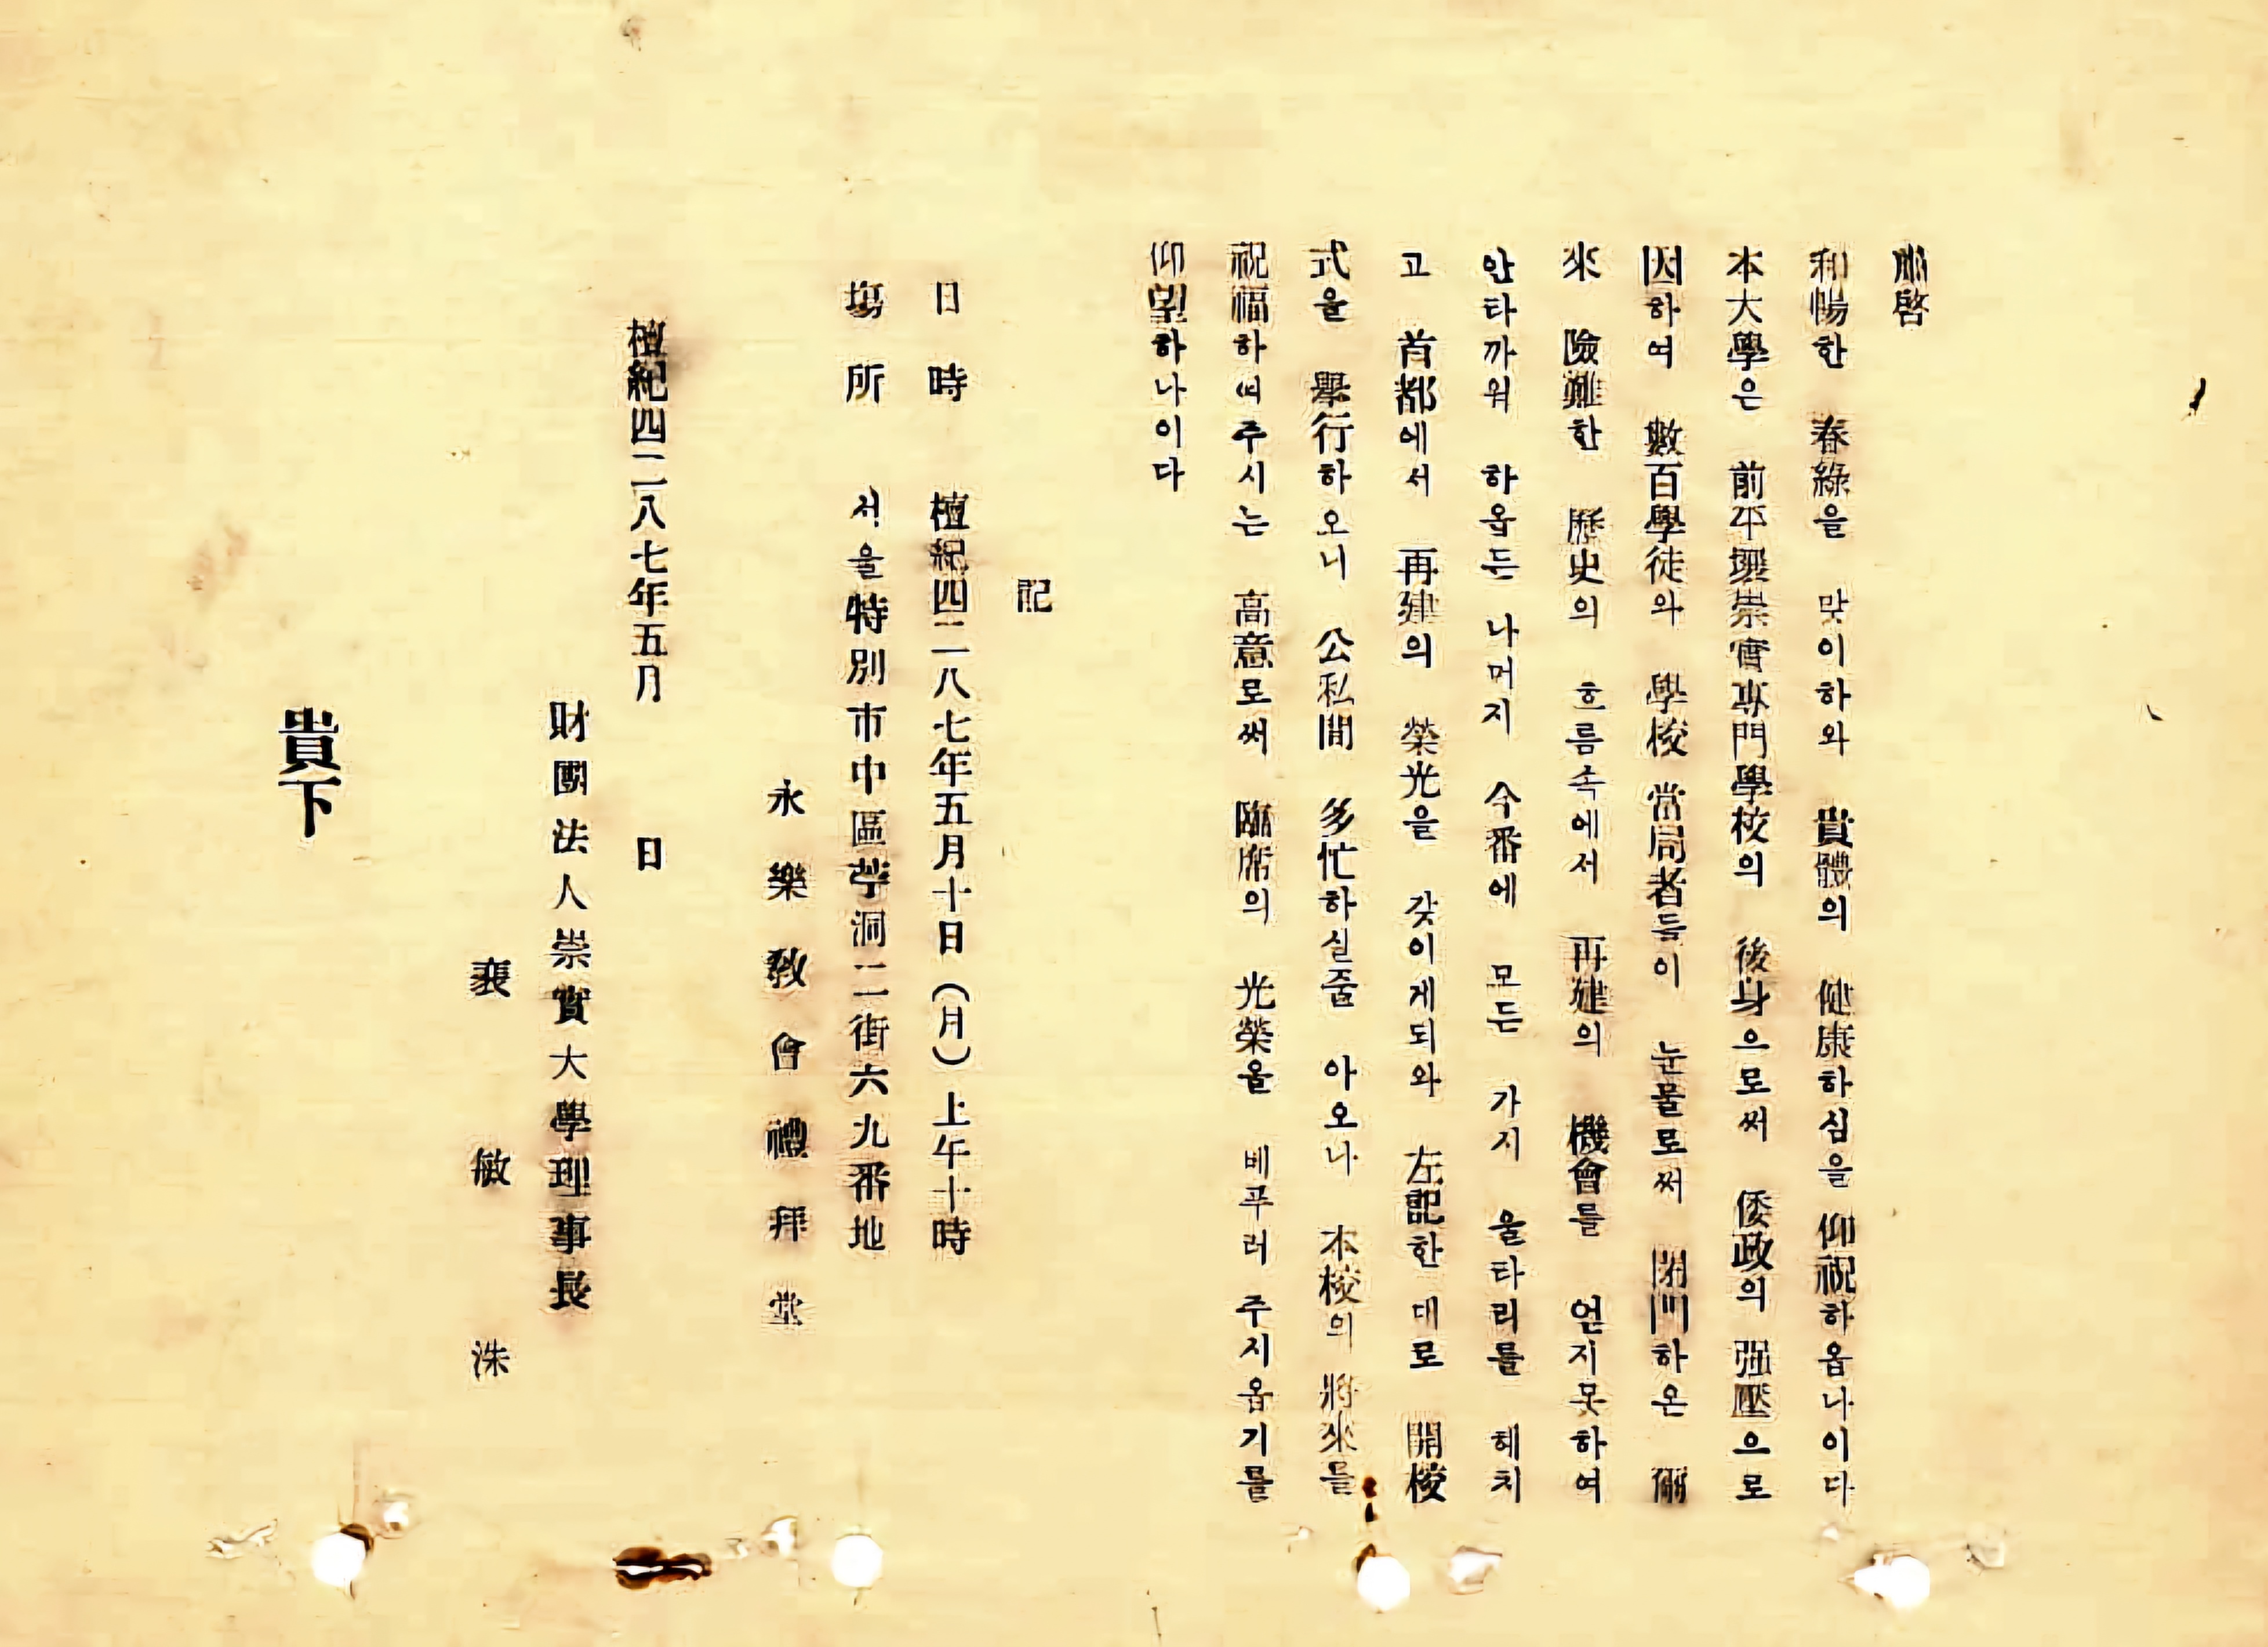 肅啓
和暢한 春綠을 맞이하와 貴體의 健康하심을 仰祝하옵나이다
本大學은 前平壤崇實專門學校의 後身으로써 倭政의 强壓으로
因하여 數百學徒와 學校 當局者들이 눈물로써 閉門하온 爾
來 險難한 歷史의 흐름속에서 再建의 機會를 얻지못하여
안타까워 하옵든 나머지 今番에 모든 가지 울타리를 헤치
고 首都에서 再建의 榮光을 갖이게되와 左記한 대로 開校
式을 擧行하오니 公私間 多忙하실줄 아오나 本校의 將來를
祝福하여주시는 高意로써 臨席의 光榮을 베푸러 주시옵기를
仰望하나이다
記
日時 檀紀四二八七年五月十日(月)上午十時
場所 서울特別市中區苧洞二街六九番地
永樂敎會禮拜堂
檀紀四二八七年五月 日
財團法人崇實大學理事長
裵敏洙
貴下